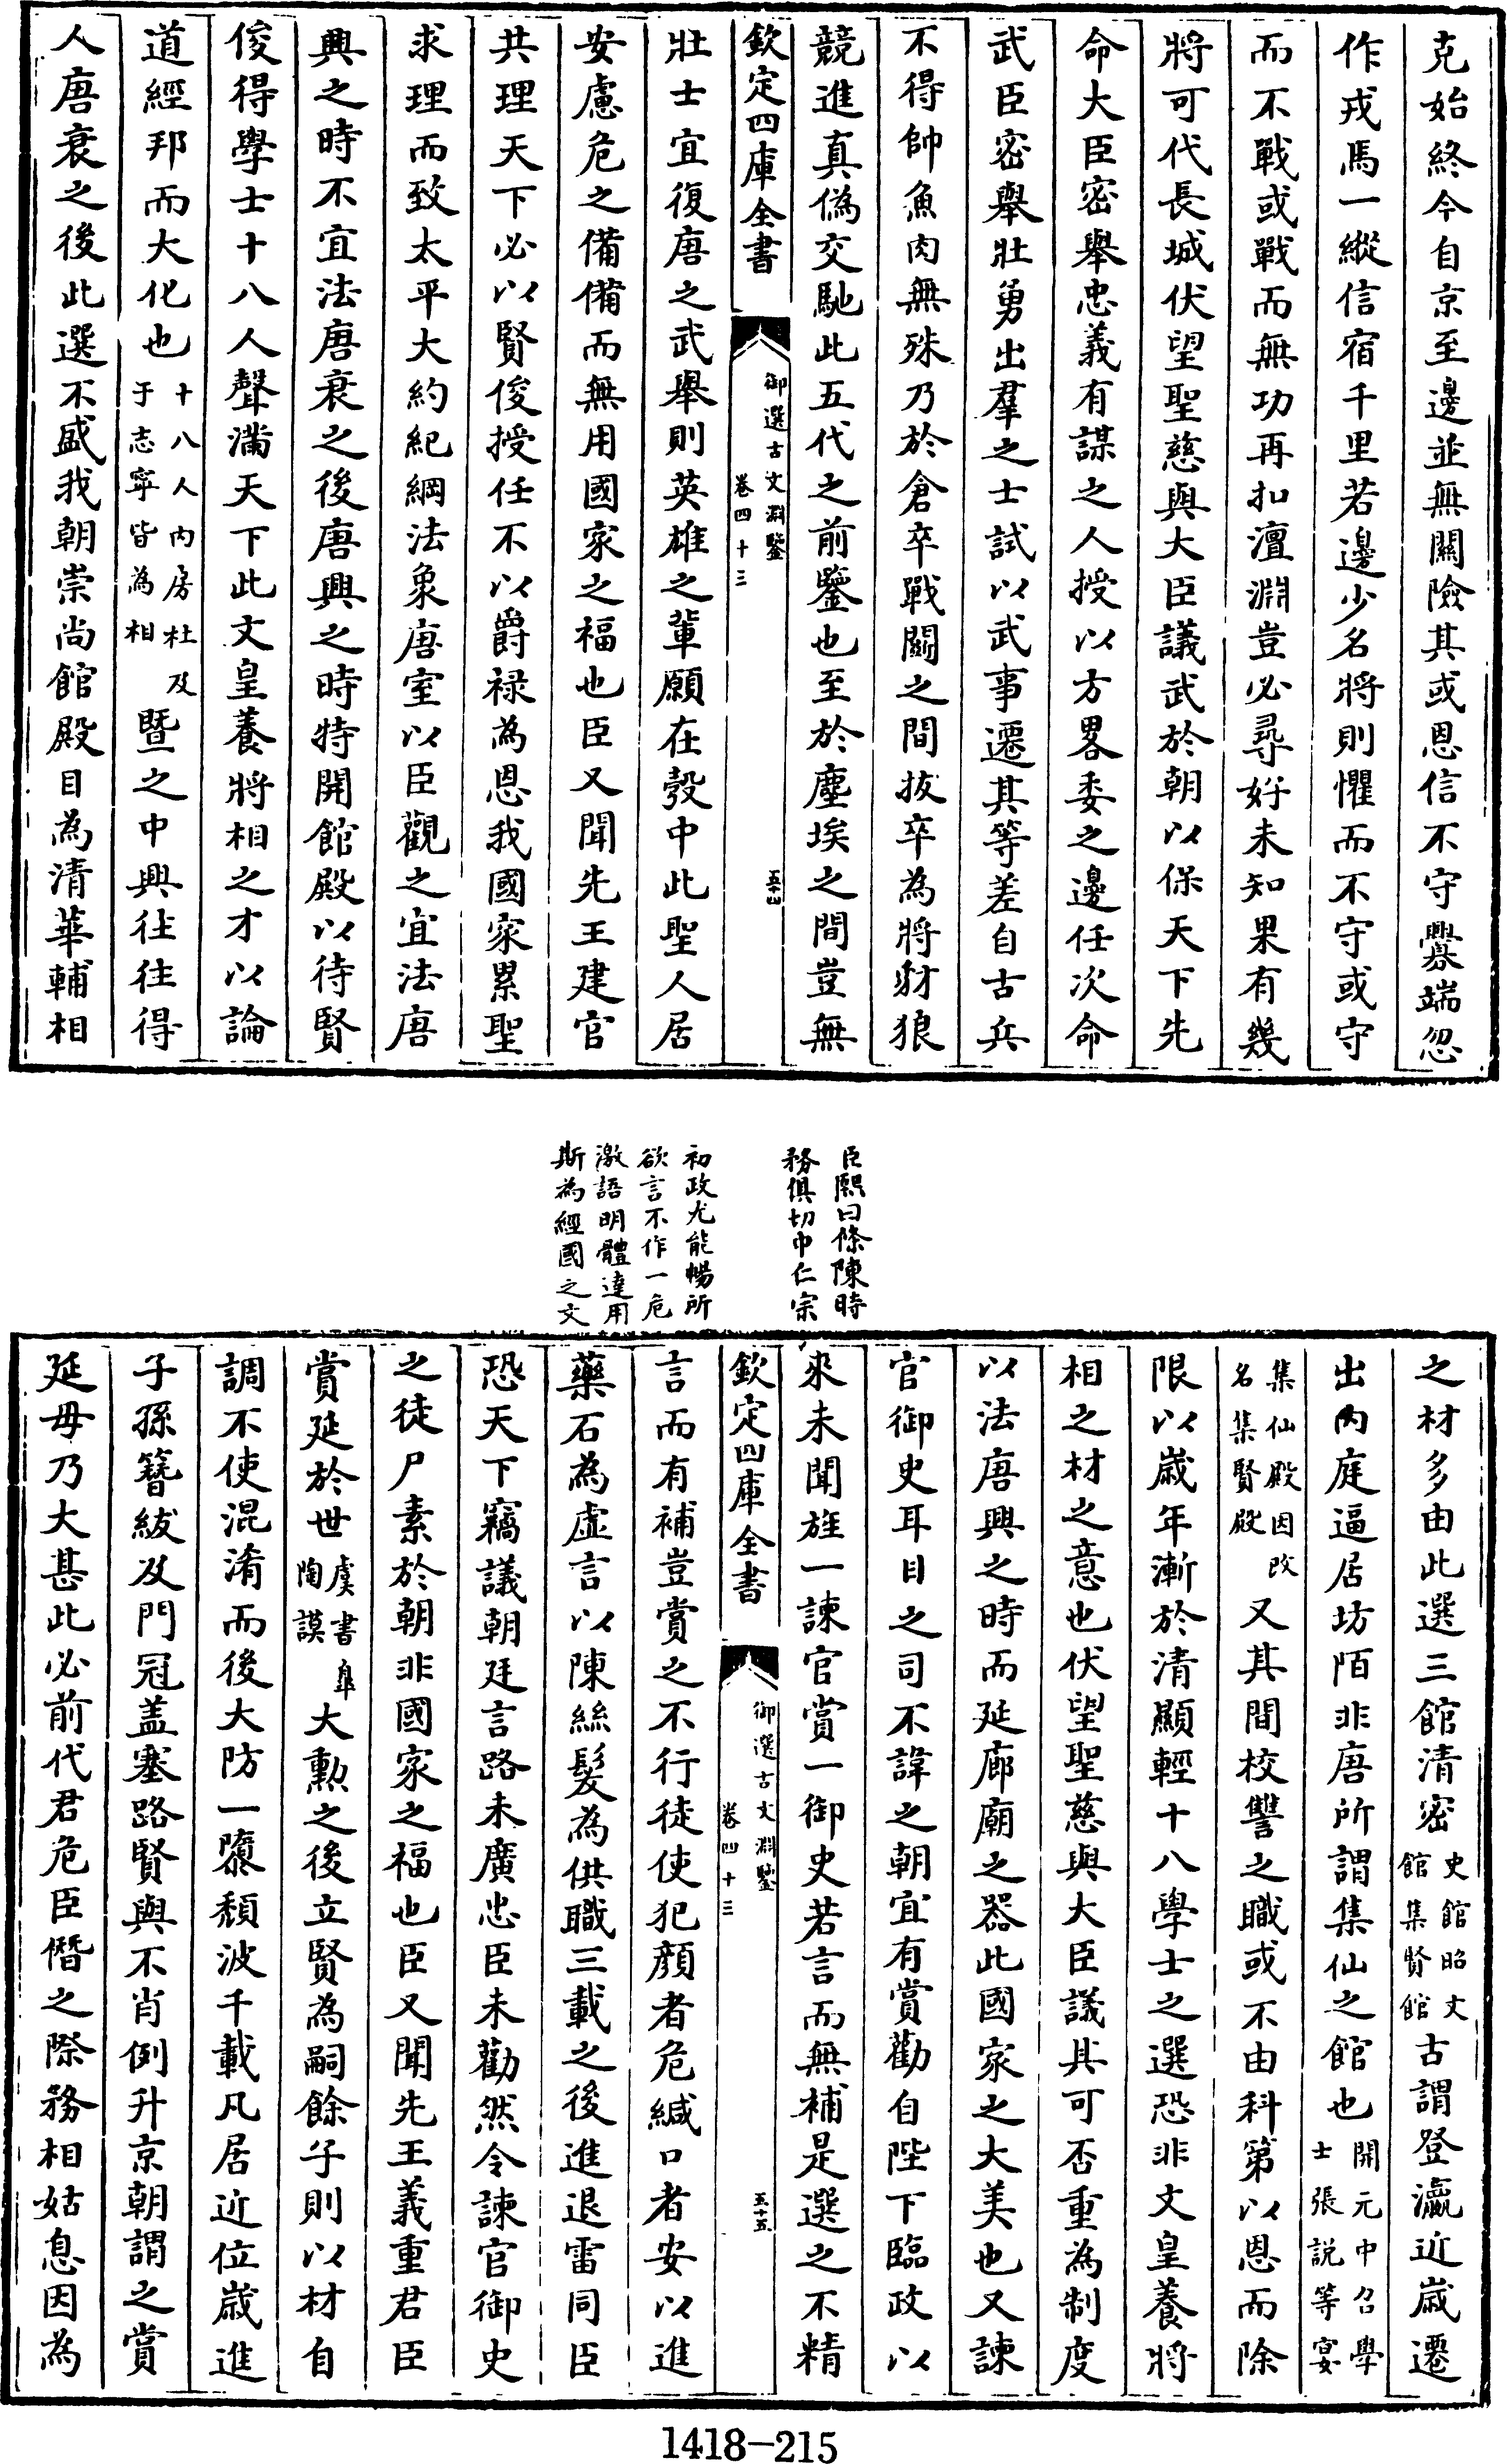 克始終今自京至邊並無關險其或恩信不守釁端忽
作戎馬一縱信宿千里若邊少名將則懼而不守或守
而不戰或戰而無功再扣澶淵豈必尋好未知果有幾
將可代長城伏望聖慈與大臣議武於朝以保天下先
命大臣密舉忠義有謀之人授以方畧委之邊任次命
武臣密舉壯勇出羣之士試以武事遷其等差自古兵
不得帥魚肉無殊乃於倉卒戰鬬之間拔卒為將豺狼
競進真偽交馳此五代之前鑒也至於塵埃之間豈無
欽定四庫全書
御選古文淵鑒
卷四十三
五十四
壯士宜復唐之武舉則英雄之輩願在彀中此聖人居
安慮危之備備而無用國家之福也臣又聞先王建官
共理天下必以賢俊授任不以爵祿為恩我國家累聖
求理而致太平大約紀綱法象唐室以臣觀之宜法唐
興之時不宜法唐衰之後唐興之時特開館殿以待賢
俊得學士十八人聲滿天下此文皇養將相之才以論
道經邦而大化也十八人內房杜及于志寧皆為相暨之中興往往得
人唐衰之後此選不盛我朝崇尚館殿目為清華輔相
臣熙曰條陳時
務俱切中仁宗
初政尤能暢所
欲言不作一危
激語明體達用
斯為經國之文
之材多由此選三館清密史館昭文館集賢館古謂登瀛近歲遷
出內庭逼居坊陌非唐所謂集仙之館也開元中召學士張說等宴
集仙殿因改名集賢殿又其間校讐之職或不由科第以恩而除
限以歲年漸於清顯輕十八學士之選恐非文皇養將
相之材之意也伏望聖慈與大臣議其可否重為制度
以法唐興之時而延廊廟之器此國家之大美也又諫
官御史耳目之司不諱之朝宜有賞勸自陛下臨政以
來未聞旌一諫官賞一御史若言而無補是選之不精
欽定四庫全書
御選古文淵鑒
卷四十三
五十五
言而有補豈賞之不行徒使犯顏者危緘口者安以進
藥石為虛言以陳絲髮為供職三載之後進退雷同臣
恐天下竊議朝廷言路未廣忠臣未勸然令諫官御史
之徒尸素於朝非國家之福也臣又聞先王義重君臣
賞延於世虞書臯陶謨大勲之後立賢為嗣餘子則以材自
調不使混淆而後大防一隳頹波千載凡居近位歲進
子孫簪紱及門冠盖塞路賢與不肖例升京朝謂之賞
延毋乃大甚此必前代君危臣僭之際務相姑息因為
1418-215